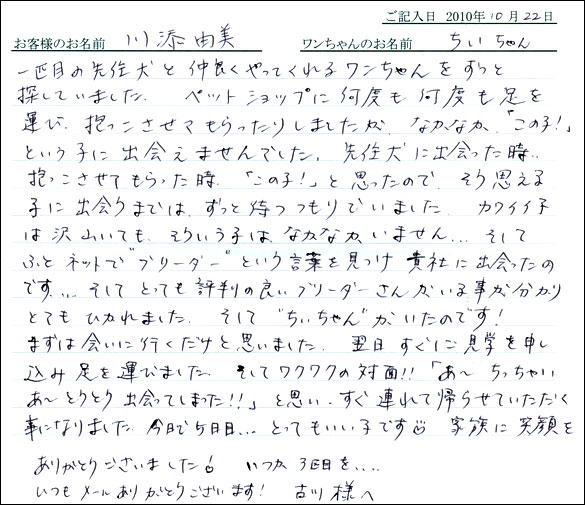 ご記入日 2010年10月22日
お客様のお名前 川添由美 ワンちゃんのお名前 ちぃちゃん
一匹目の先住犬と仲良くやってくれるワンちゃんをずっと
探していました。 ペットショップに何度も何度も足を
運び、抱っこさせてもらったりしましたが、なかなか、「この子!」
という子に出会えませんでした。先住犬に出会った時、
抱っこさせてもらった時、「この子!」と思ったので、そう思える
子に出会うまでは、ずっと待つつもりでいました。カワイイ子
は沢山いても、そういう子は、なかなかいません... そして
ふとネットで"ブリーダー"という言葉を見つけ 貴社に出会ったの
です... そしてとっても評判の良いブリーダーさんがいる事が分かり
とてもひかれました。そして"ちぃちゃん"がいたのです!
まずは会いに行くだけと思いました。翌日すぐに見学を申し
込み足を運びました。そしてワクワクの対面!!「あ〜ちっちゃい
あ〜とうとう出会ってしまった!!」と思い、すぐ連れて帰らせていただく
事になりました。今日で5日目... とってもいい子です 家族に笑顔を
ありがとうございました! いつか3匹目を....
いつもメールありがとうございます! 古川様へ